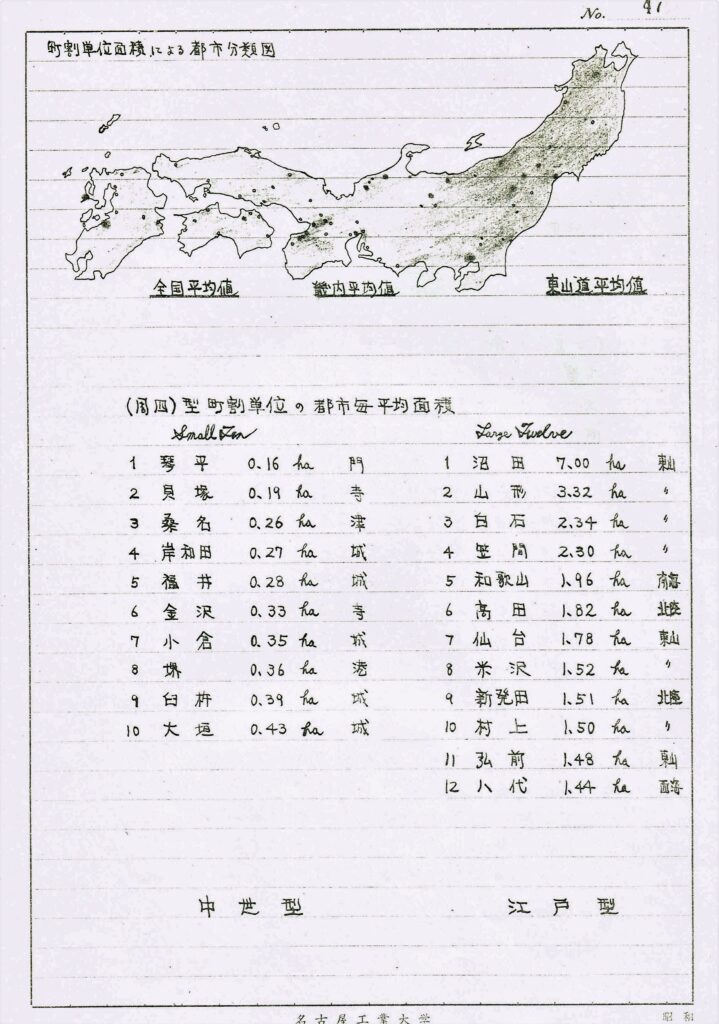 No. 47
町割単位面積による都市分類図
全国平均値 畿内平均値 東山道平均値
(周四)型町割単位の都市毎平均面積
Small Ten Large Twelve
1 琴平 0.16 ha 門 1 沼田 7.00 ha 東山
2 貝塚 0.19 ha 寺 2 山形 3.32 ha 〃
3 桑名 0.26 ha 津 3 白石 2.34 ha 〃
4 岸和田 0.27 ha 城 4 笠間 2.30 ha 〃
5 福井 0.28 ha 城 5 和歌山 1.96 ha 南海
6 金沢 0.33 ha 寺 6 高田 1.82 ha 北陸
7 小倉 0.35 ha 城 7 仙台 1.78 ha 東山
8 堺 0.36 ha 港 8 米沢 1.52 ha 〃
9 臼杵 0.39 ha 城 9 新発田 1.51 ha 北陸
10 大垣 0.43 ha 城 10 村上 1.50 ha 〃
11 弘前 1.48 ha 東山
12 八代 1.44 ha 西海
中世型 江戸型
名古屋工業大学 昭和